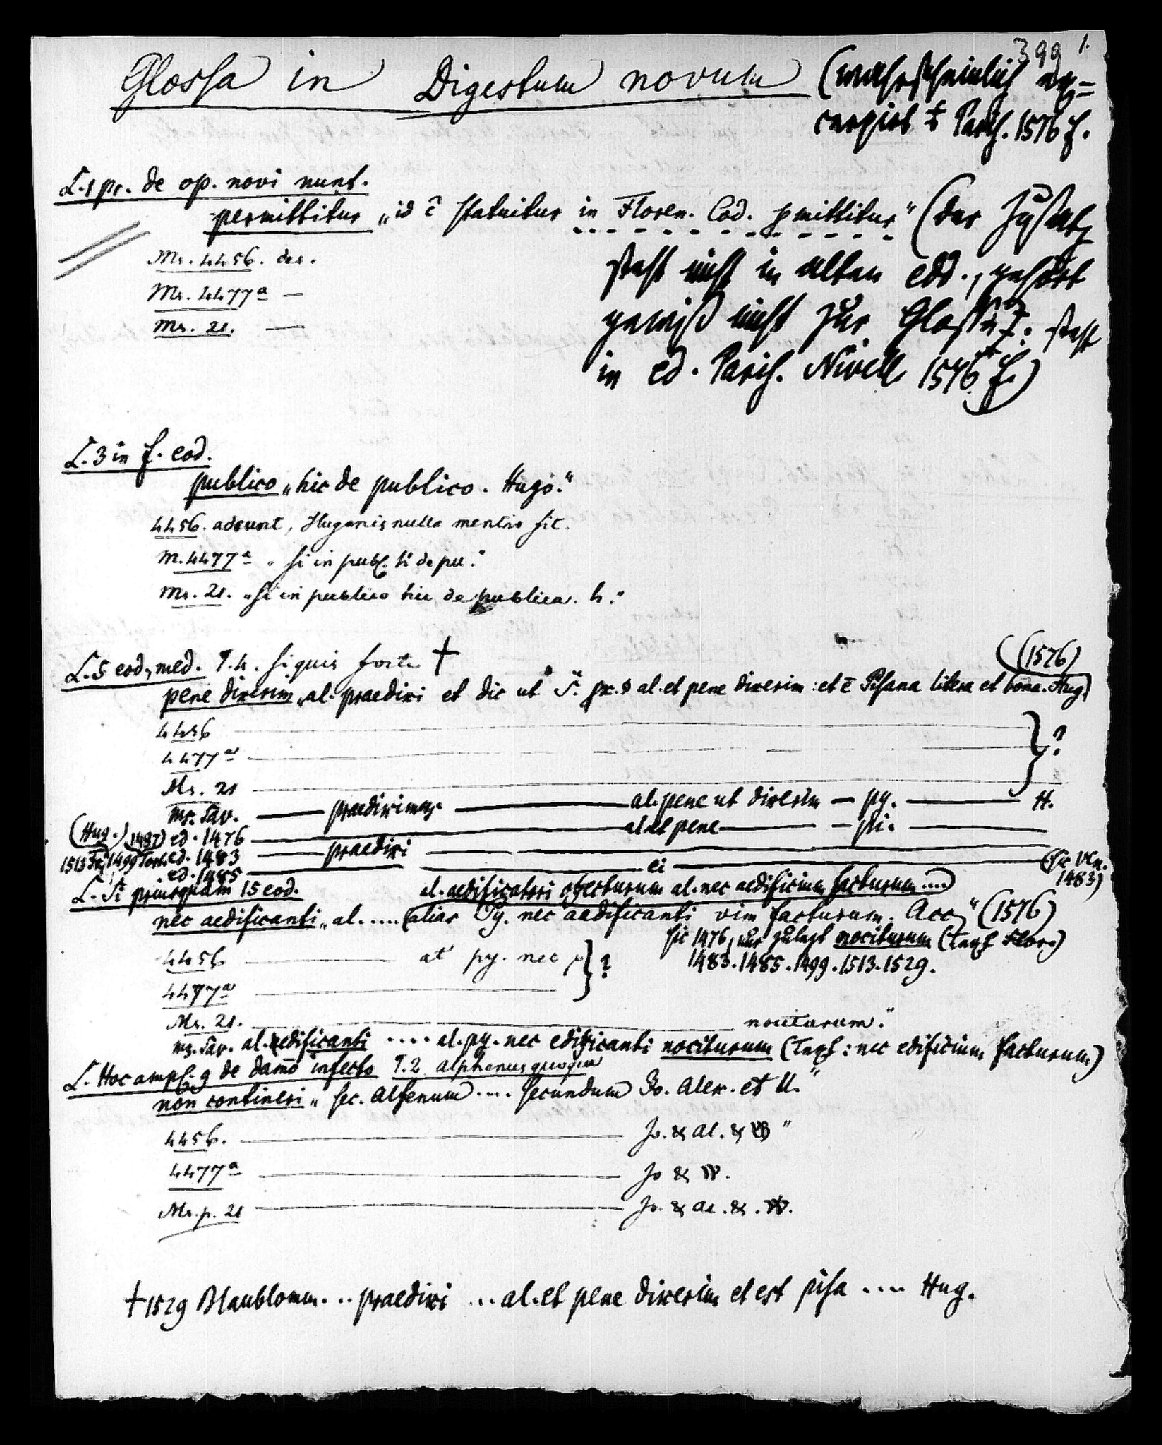 399 1.
Glossa in Digestum novum (wahrscheinlich ex-
cerpirt Paris. 1576 f.
L. 1 pr. de op. novi nunt.
permittitur „id ē statuitur in Floren. Cod. pmittitur“ (der Zusatz
Ms. 4456. des. steht nicht in alten edd., gehört
Ms. 4477ª — gewiß nicht zur Glosse. steht
Ms. 21. — in ed. Paris. Nivell 1576 f.)
L. 3 in f. eod.
publico „hic de publico. Hugo.“
4456. adsunt, Hugonis nulla mentio fit.
M. 4477ª „si in publ. h' de pu.“
Ms. 21. „si in publico hic de publica. h.“
L. 5 eod, med. T. h. si quis forte † (1576)
pene dixerim „al. praedixi et dic ut J. pr. al. et pene dixerim: et ē Pisana litera et bona. Hug.
4456
4477ª ?
Ms. 21
Ms. Sav. — praediximus — al. pene ut dixerim — py. — H.
(Hug.) 1497) ed. 1476 — al et pene — pi.
1513 1499 Tort. ed. 1483 — praedixi
ed. 1485 — ei — (sic Ven. 1483)
L. Si priusquam 15 eod. al. aedificatori obfecturum al. nec aedificium facturum ....)
nec aedificanti „al. ..... (alias Py. nec aedificanti vim facturum. Acc.“ (1576)
sic 1476, nur zuletzt nociturum (Text Flor.)
4456 — at py. nec ? 1483. 1485. 1499. 1513. 1529.
4477ª
Ms. 21. — nociturum.“
Ms. Sav. al. edificanti .... al. py. nec edificanti nociturum (Text: nec edificium facturum)
L. Hoc ampl. 9 de damō infecto T. 2. alphenus quoque
non contineri „ sec. Alfenum .... secundum Jo. Alex. et U.“
4456. — Jo. & al. & “
4477ª — Jo &
Ms. p. 21 — Jo. & al. &
† 1529 Blaublomm. .. praedixi ... al. et pene dixerim et est pisa .... Hug.